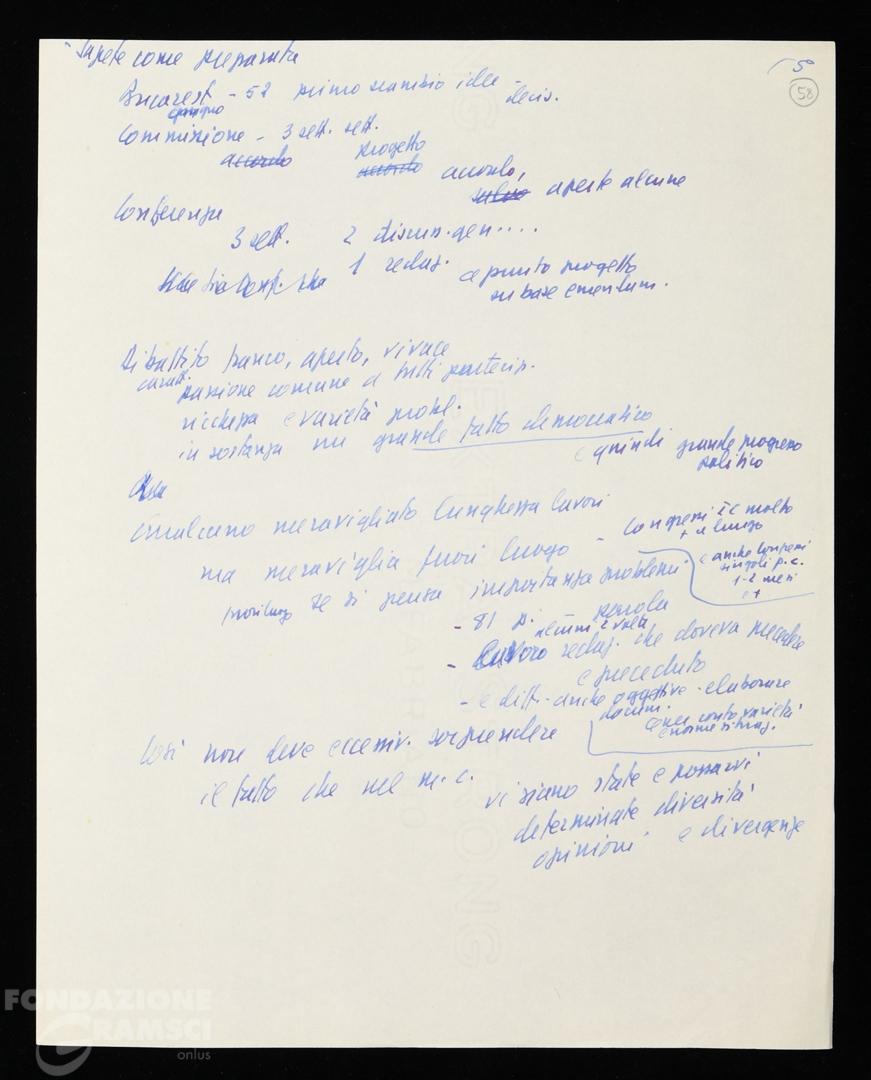 Sapete come preparata
5
58
Bucarest - 52 primo scambio idee - decis.
giugno
Commissione - 3 sett. sett.
accordo progetto
accordo accordo,
salvo aperte alcune
Conferenza
3 sett. 2 discuss. gen....
1 redaz. a punto progetto
su base emendam.
Dibattito franco, aperto, vivace
caratt.
passione comune a tutti partecip.
ricchezza e varietà probl.
in sostanza un grande fatto democratico
e quindi grande progresso
politico
Qualcuno meravigliato lunghezza lavori
ma meraviglia fuori luogo - Congressi molto
+ a lungo
e anche congressi
singoli p.c.
1-2 mesi
e +
se si pensa importanza problemi
- 81 p. parola
alcuni 2 volte
- lavoro redaz. che doveva precedere
e preceduto
- e diff. anche oggettive - elaborare
docum.
conto varietà
enorme situaz.
Così non deve eccessiv. sorprendere
il fatto che nel m.c. vi siano state e possarvi
determinate diversità
opinioni e divergenze
FONDAZIONE
GRAMSCI
onlus